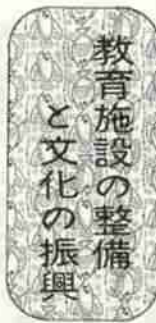 教育施設の整備
と文化の振興